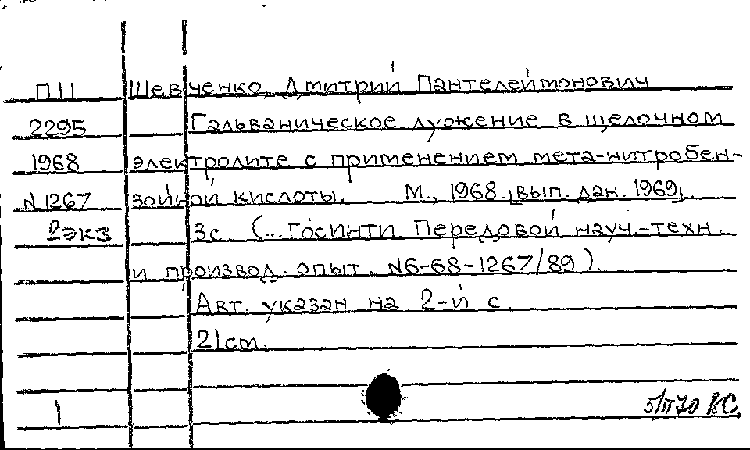 П11 Шевченко, Дмитрий Пантелеймонович
2295 Гальваническое лужение в щелочном
1968 электролите с применением мета-нитробен-
N1267 зойной кислоты. М., 1968, [вып. дан. 1969].
2экз 3с. (... Госинти Передовой науч.-техн.
и производ. опыт. N6-68-1267/89)
Авт. указан на 2-й с.
21см.
1 5/II 70 ВС